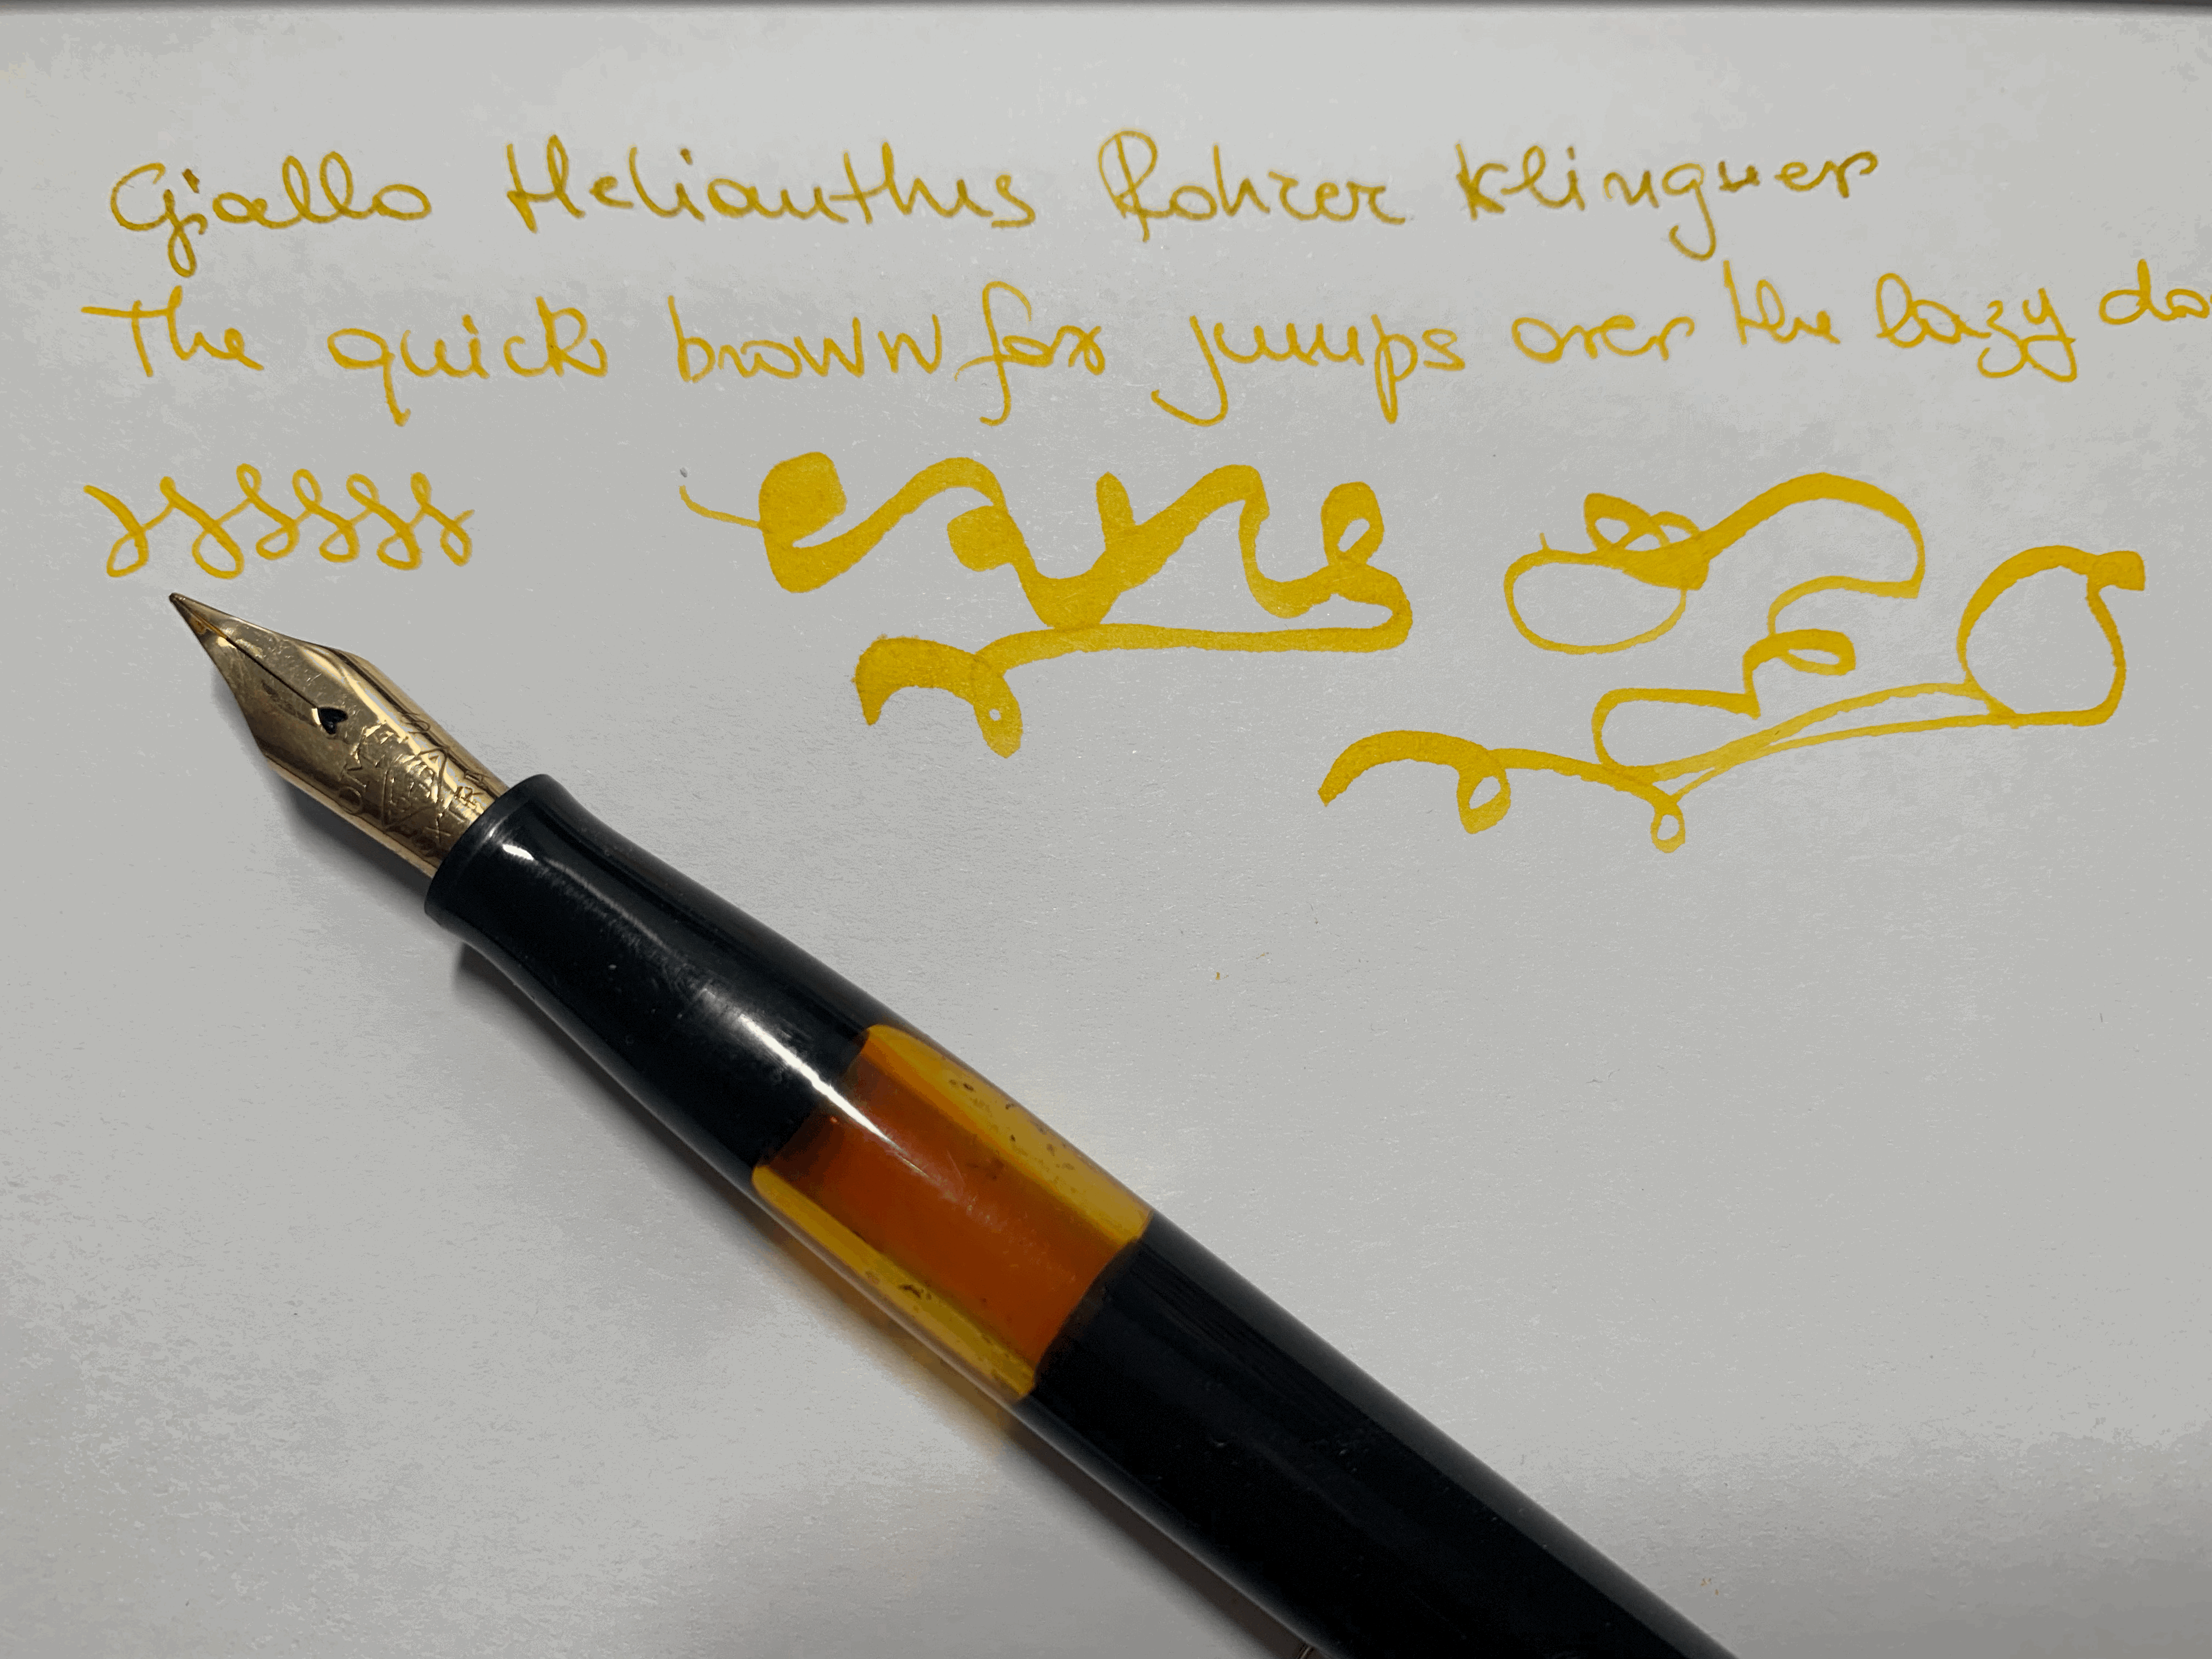 Giallo Helianthus Rohrer Klingner
The quick brown fox jumps over the lazy do